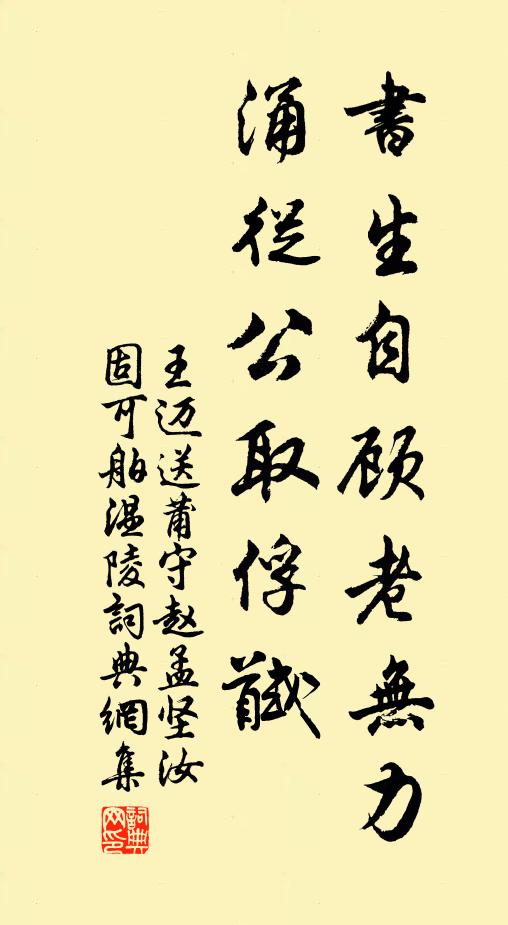 書生自顾老無力
涌從公取俘馘
王迈送莆守赵孟坚汝
固可舶温陵詞典網集
詞典网印